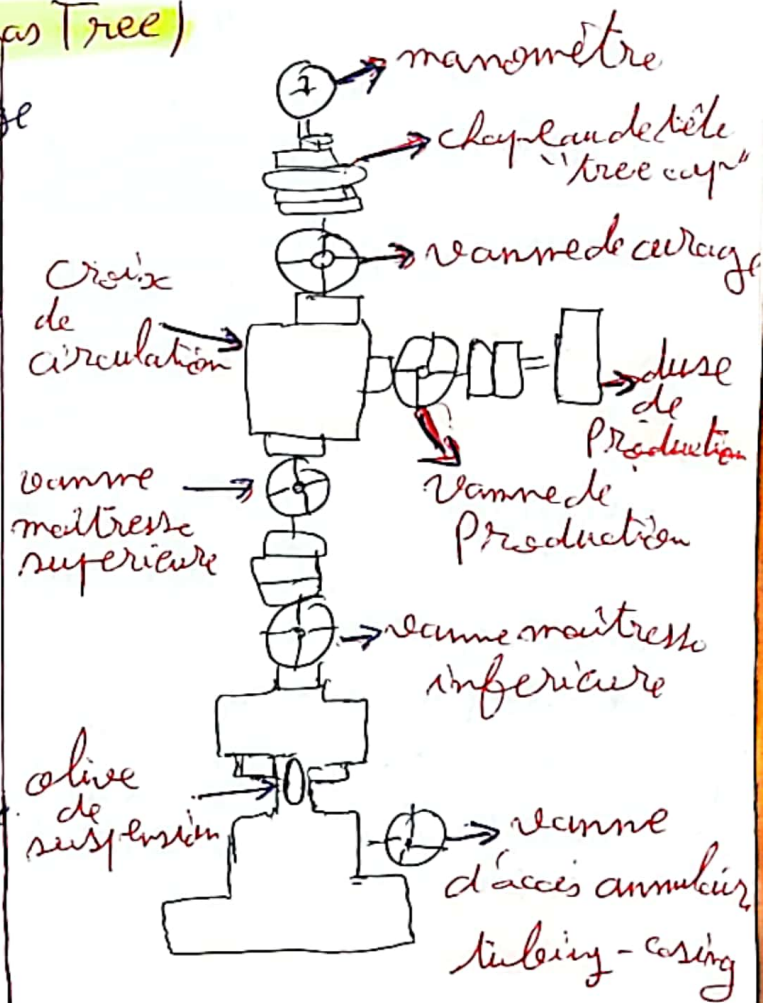 as Tree)
manomètre
chapeau de tête
"tree cap"
vanne de curage
Croix
de
circulation
duse
de
Production
vanne
maîtresse
supérieure
Vanne de
Production
vanne maîtresse
inférieure
olive
de
suspension
vanne
d'accès annulair
tubing - casing